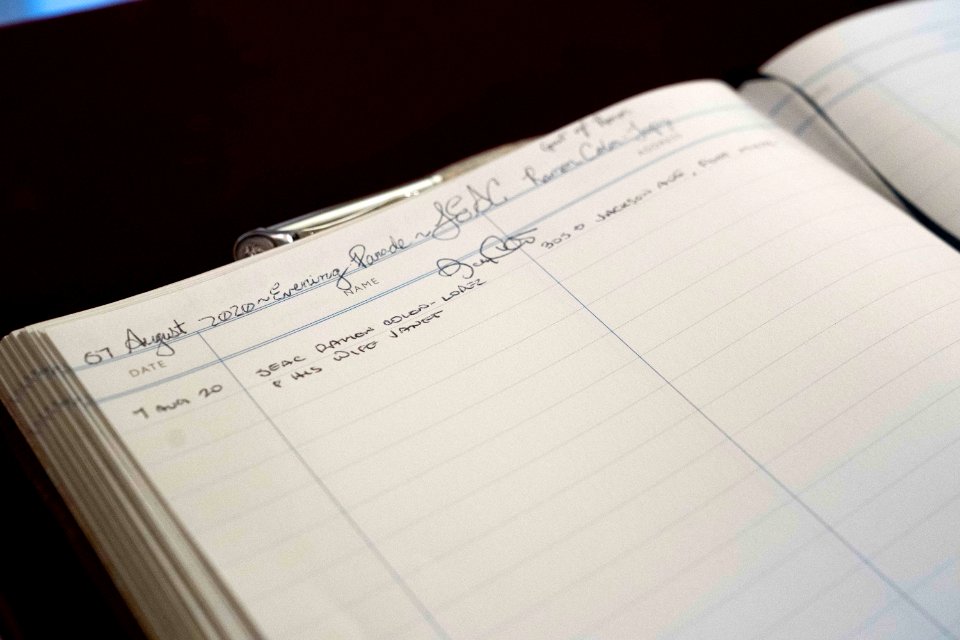 Guest of Honor
07 August 2020~Evening Parade~SEAC Ramon Colon-Lopez
DATE NAME ADDRESS
7 AUG 20 SEAC RAMON COLON-LOPEZ 305 JACKSON AVE, FORT
& HIS WIFE JANET